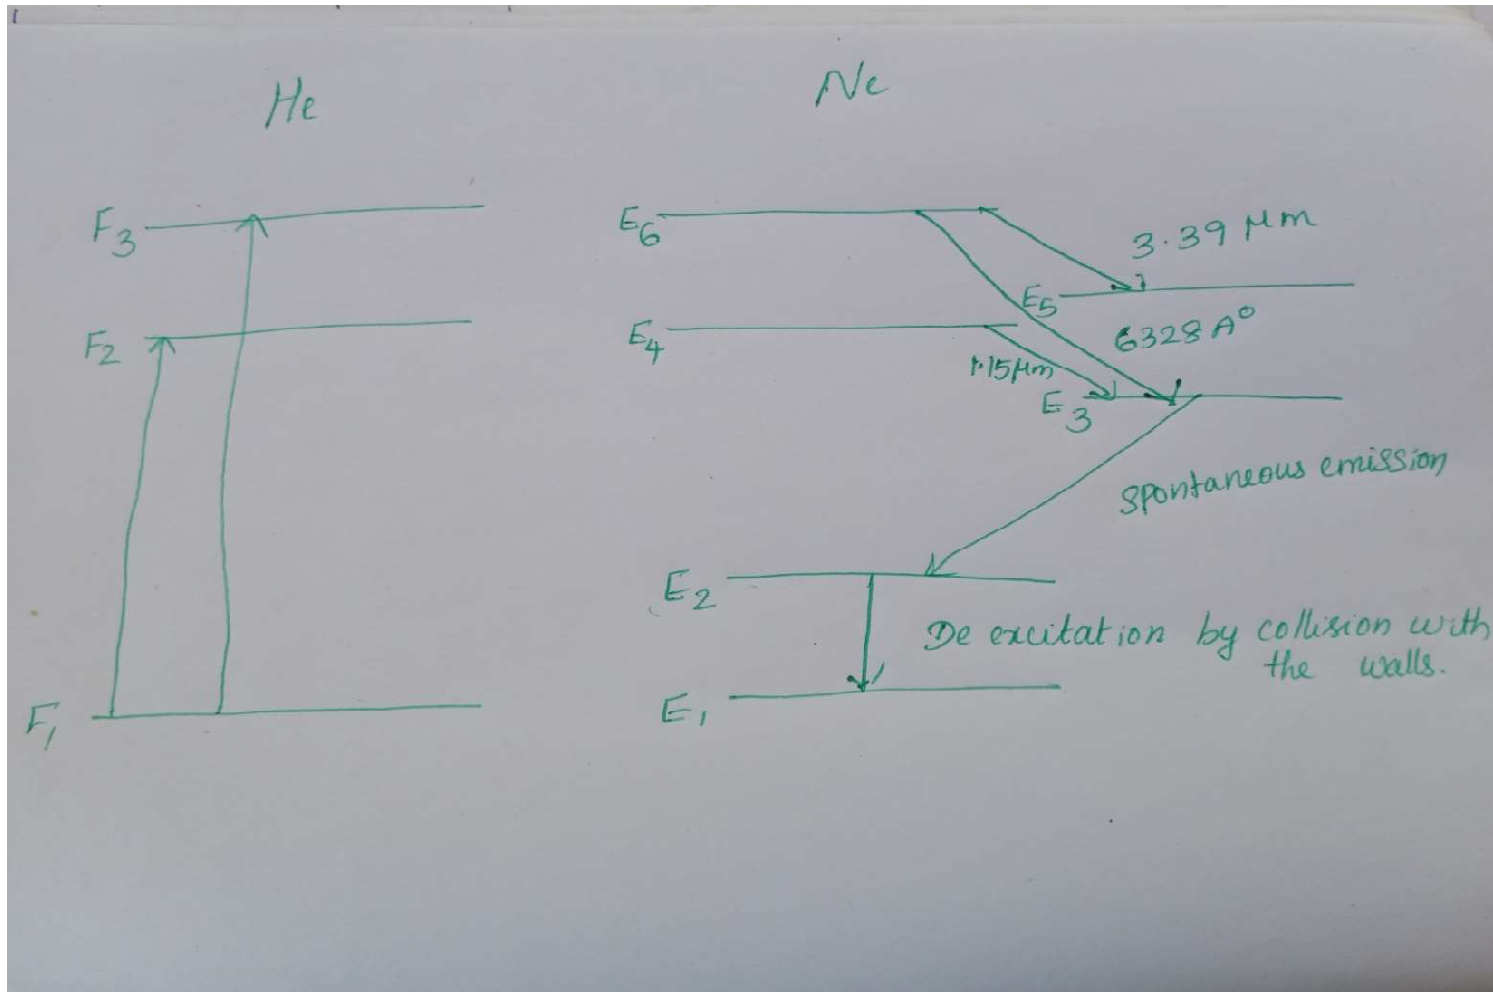 He
Ne
F3
E6
3.39 μm
E5
F2
E4
6328 A°
1.15μm
E3
Spontaneous emission
E2
De excitation by collision with
the walls.
F1
E1